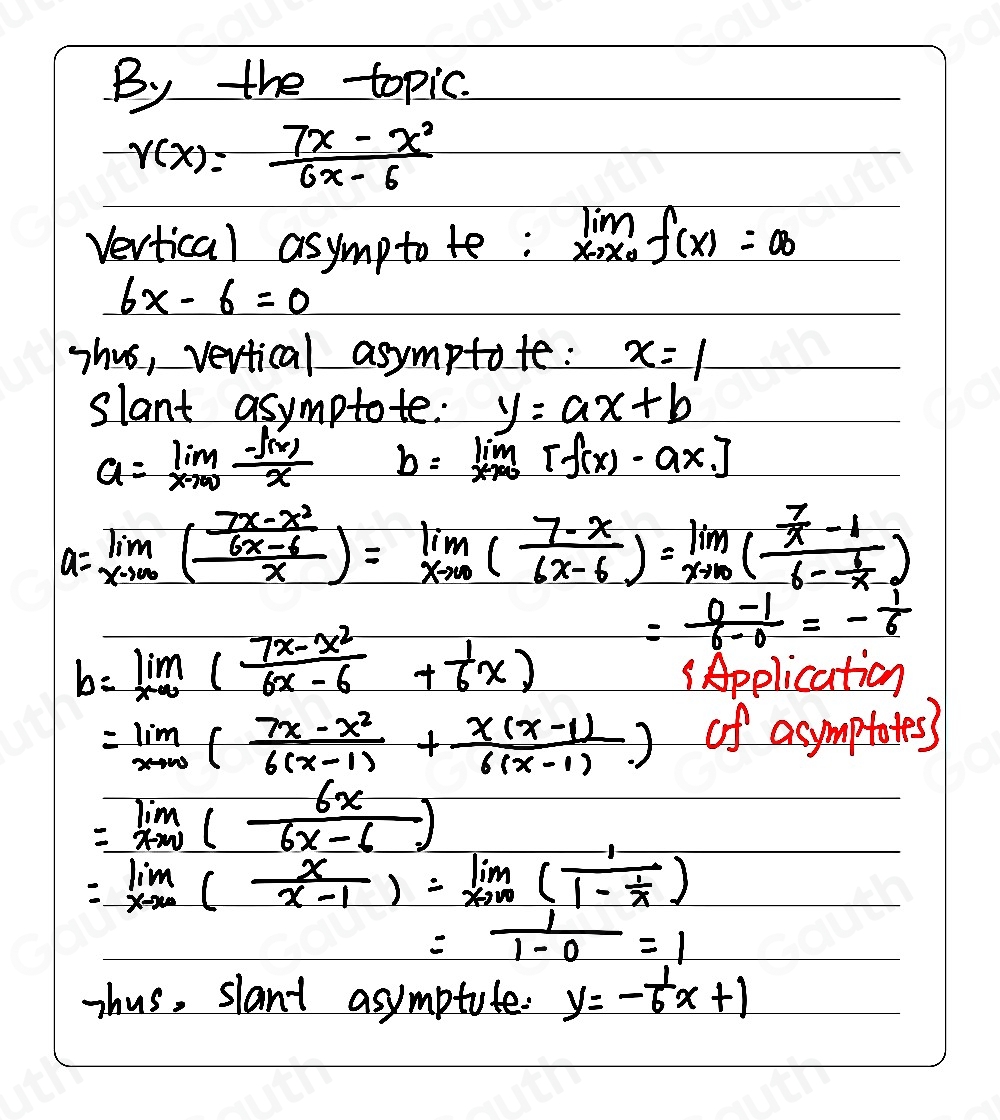 By the topic.
r(x) = (7x - x²)/(6x - 6)
Vertical asymptote : lim x→x₀ f(x) = ∞
6x - 6 = 0
Thus, vertical asymptote: x = 1
Slant asymptote: y = ax + b
a = lim x→∞ f(x)/x b = lim x→∞ [f(x) - ax.]
a = lim x→∞ (((7x - x²)/(6x - 6))/x) = lim x→∞ ((7 - x)/(6x - 6)) = lim x→∞ ((7/x - 1)/(6 - 6/x))
= (0 - 1)/(6 - 0) = -1/6
b = lim x→∞ ((7x - x²)/(6x - 6) + 1/6 x)
{Application of asymptotes}
= lim x→∞ ((7x - x²)/(6(x - 1)) + x(x - 1)/(6(x - 1)))
= lim x→∞ (6x/(6x - 6))
= lim x→∞ (x/(x - 1)) = lim x→∞ (1/(1 - 1/x))
= 1/(1 - 0) = 1
Thus, slant asymptote: y = -1/6 x + 1
Gauth